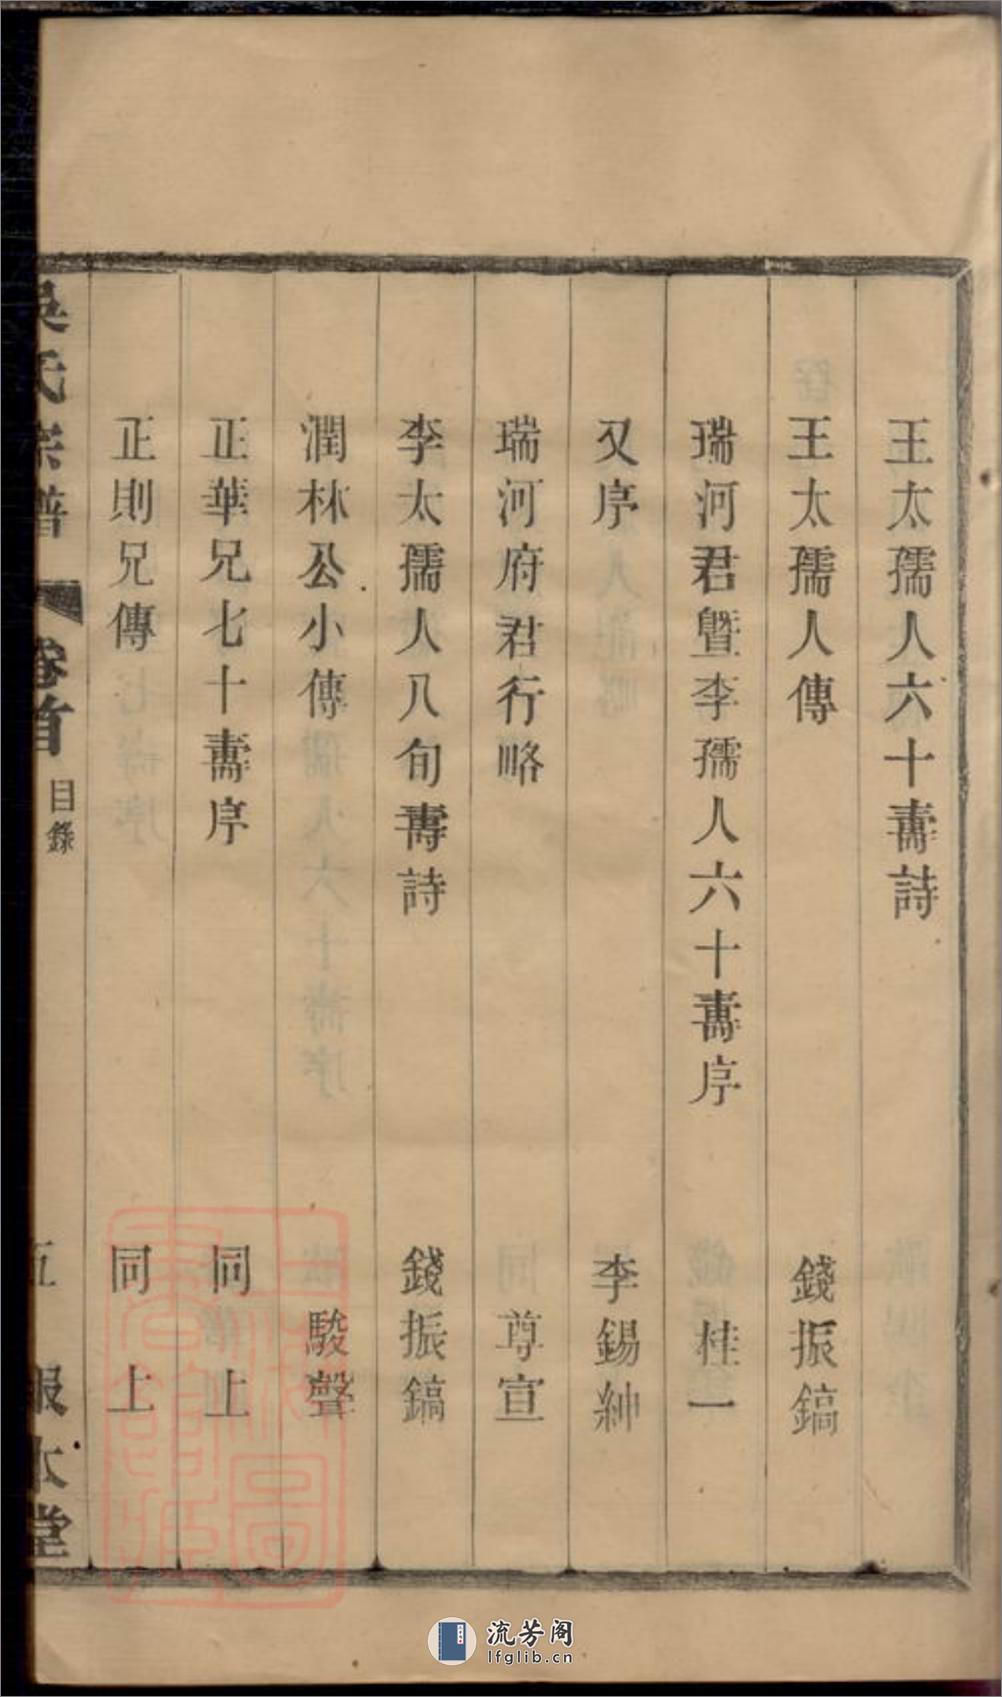 王太孺人六十壽詩
王太孺人傳 錢振鎬
瑞河君曁李孺人六十壽序 桂一
又序 李錫紳
瑞河府君行略 尊宣
李太孺人八旬壽詩 錢振鎬
潤林公小傳 駿聲
正華兄七十壽序 同上
正則兄傳 同上
吳氏宗譜 卷首 目錄 五 報本堂
上海圖書館藏
流芳阁
lfglib.cn